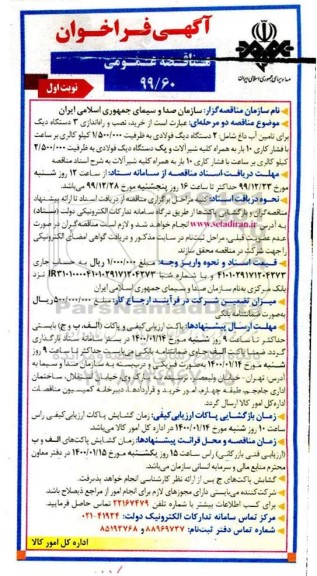 آگهی فراخوان
مناقصه عمومی
۹۹/۶۰
نوبت اول
صدا و سیمای جمهوری اسلامی ایران
نام سازمان مناقصه‌گزار: سازمان صدا و سیمای جمهوری اسلامی ایران
موضوع مناقصه دو مرحله‌ای: عبارت است از خرید، نصب و راه‌اندازی ۳ دستگاه دیگ
برای تامین آب داغ شامل ۲ دستگاه دیگ فولادی به ظرفیت ۱/۵۰۰/۰۰۰ کیلو کالری بر ساعت
با فشار کاری ۱۰ بار به همراه کلیه شیرآلات و یک دستگاه دیگ فولادی به ظرفیت ۲/۵۰۰/۰۰۰
کیلو کالری بر ساعت با فشار کاری ۱۰ بار به همراه کلیه شیرآلات به شرح اسناد مناقصه
مهلت دریافت اسناد مناقصه از سامانه ستاد: از ساعت ۱۲ روز شنبه
مورخ ۹۹/۱۲/۲۳ حداکثر تا ساعت ۱۶ روز پنجشنبه مورخ ۹۹/۱۲/۲۸ می باشد.
نحوه دریافت اسناد: کلیه مراحل برگزاری مناقصه از دریافت اسناد تا ارائه پیشنهاد
مناقصه‌گران و بازگشایی پاکت‌ها از طریق درگاه سامانه تدارکات الکترونیکی دولت (ستاد)
به آدرس www.setadiran.ir انجام خواهد شد و لازم است مناقصه‌گران در صورت
عدم عضویت قبلی، مراحل ثبت‌نام در سایت مذکور و دریافت گواهی امضای الکترونیکی
را جهت شرکت در مناقصه محقق سازند.
قیمت اسناد و نحوه واریز وجه: مبلغ ۱/۰۰۰/۰۰۰ ریال به حساب جاری
نزد
بانک مرکزی به‌نام سازمان صدا و سیمای جمهوری اسلامی ایران
میزان تضمین شرکت در فرآیند ارجاع کار: مبلغ ۵۰۰/۰۰۰/۰۰۰ ریال
به‌صورت ضمانتنامه بانکی
مهلت ارسال پیشنهادها: پاکت ارزیابی کیفی و پاکات (الف، ب و ج) بایستی
حداکثر تا ساعت ۹ روز شنبه مورخ ۱۴۰۰/۰۱/۱۴ در بستر سامانه ستاد بارگذاری
گردد. ضمنا پاکت الف حاوی ضمانتنامه بانکی می‌بایست حداکثر تا ساعت ۹ روز
شنبه مورخ ۱۴۰۰/۰۱/۱۴ به‌صورت فیزیکی و دربسته به سازمان صدا و سیما به
آدرس: تهران - خیابان ولیعصر
اداری جام‌جم، طبقه چهارم، امور خرید و قراردادها، دبیرخانه کمیسیون مناقصات
اداره کل امور کالا ارسال گردد.
زمان بازگشایی پاکات ارزیابی کیفی: زمان گشایش پاکات ارزیابی کیفی راس
ساعت ۱۰ روز شنبه مورخ ۱۴۰۰/۰۱/۱۴ در اداره کل امور کالا می‌باشد.
زمان مناقصه و محل قرائت پیشنهادها: زمان گشایش پاکت‌های الف و ب
(ارزیابی فنی بازرگانی) راس ساعت ۱۵ روز یکشنبه مورخ ۱۴۰۰/۰۱/۱۵ در دفتر معاون
محترم منابع مالی و سرمایه انسانی سازمان می‌باشد.
گشایش پاکت‌های ج پس از ارائه نظر کارشناسی انجام خواهد پذیرفت.
شرکت‌کننده می‌بایستی دارای مجوزهای لازم برای انجام امور از مراجع ذیصلاح باشد.
برای کسب اطلاعات بیشتر با شماره تلفن ۲۲۱۶۷۴۷۹ تماس حاصل فرمایید.
مرکز تماس سامانه تدارکات الکترونیک دولت: ۴۱۹۳۴-۰۲۱
شماره تماس دفتر ثبت‌نام: ۸۸۹۶۹۷۳۷ و ۸۵۱۹۳۷۶۸
اداره کل امور کالا